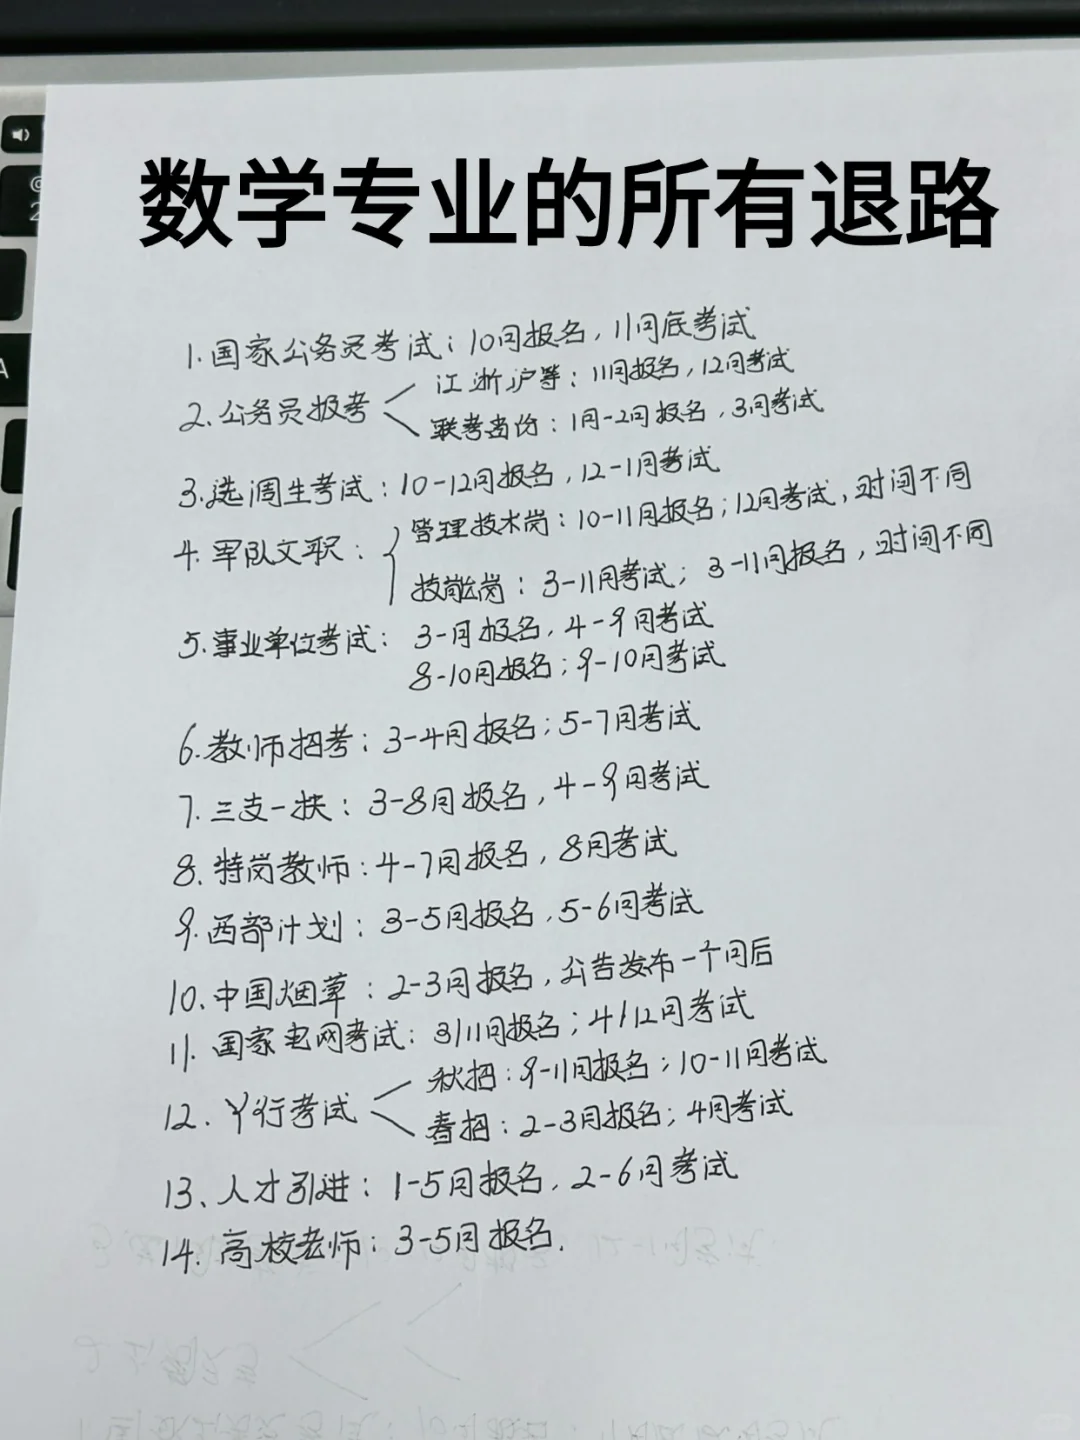 数学专业的所有退路
1.国家公务员考试：10月报名，11月底考试
2.公务员报考
江浙沪等：11月报名，12月考试
联考省份：1月-2月报名，3月考试
3.选调生考试：10-12月报名，12-1月考试
4.军队文职：
管理技术岗：10-11月报名；12月考试，时间不同
技能岗：3-11月考试；3-11月报名，时间不同
5.事业单位考试：3-月报名，4-9月考试
8-10月报名；9-10月考试
6.教师招考：3-4月报名；5-7月考试
7.三支一扶：3-8月报名，4-9月考试
8.特岗教师：4-7月报名，8月考试
9.西部计划：3-5月报名，5-6月考试
10.中国烟草：2-3月报名，公告发布一个月后
11.国家电网考试：3/11月报名；4/12月考试
12.丫行考试
秋招：9-11月报名；10-11月考试
春招：2-3月报名；4月考试
13、人才引进：1-5月报名，2-6月考试
14.高校老师：3-5月报名.